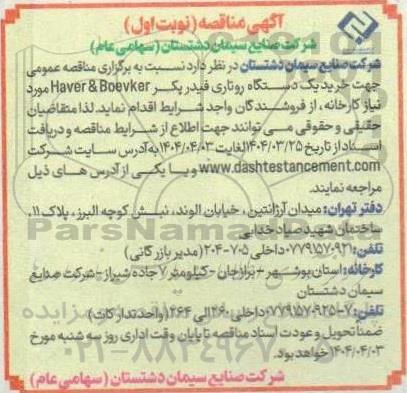 آگهی مناقصه (نوبت اول)
شرکت صنایع سیمان دشتستان (سهامی عام)
شرکت صنایع سیمان دشتستان در نظر دارد نسبت به برگزاری مناقصه عمومی
جهت خرید یک دستگاه روتاری فیدر پکر Haver & Boevker مورد
نیاز کارخانه ، از فروشندگان واجد شرایط اقدام نماید. لذا متقاضیان
حقیقی و حقوقی می توانند جهت اطلاع از شرایط مناقصه و دریافت
اسناد از تاریخ ۱۴۰۴/۰۳/۲۵ لغایت ۱۴۰۴/۰۴/۰۳ به آدرس سایت شرکت
www.dashtestancement.com و یا یکی از آدرس های ذیل
مراجعه نمایند.
دفتر تهران: میدان آرژانتین ، خیابان الوند، نبش کوچه البرز ، پلاک ۱۱،
ساختمان شهید صیاد خدایی
تلفن: ۰۷۷۹۱۵۷۰۹۲۱ داخلی ۷۰۵-۲۰۴ (مدیر بازرگانی)
کارخانه: استان بوشهر - برازجان - کیلومتر ۷ جاده شیراز - شرکت صنایع
سیمان دشتستان
تلفن: ۷-۰۷۷۹۱۵۷۰۹۲۵ داخلی ۲۶۰ الی ۲۶۴ (واحد تدارکات)
ضمنا تحویل و عودت اسناد مناقصه تا پایان وقت اداری روز سه شنبه مورخ
۱۴۰۴/۰۴/۰۳ خواهد بود.
شرکت صنایع سیمان دشتستان (سهامی عام)
ParsNamadData
۰۲۱-۸۸۳۴۹۶۷۰